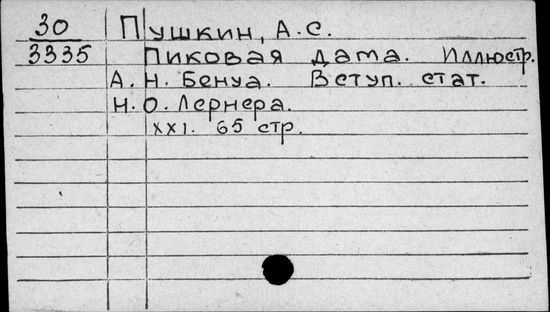 30 Пушкин, А.С.
3335 Пиковая дама. Иллюстр.
А. Н. Бенуа. Вступ. стат.
Н. О. Лернера.
XXI. 65 стр.